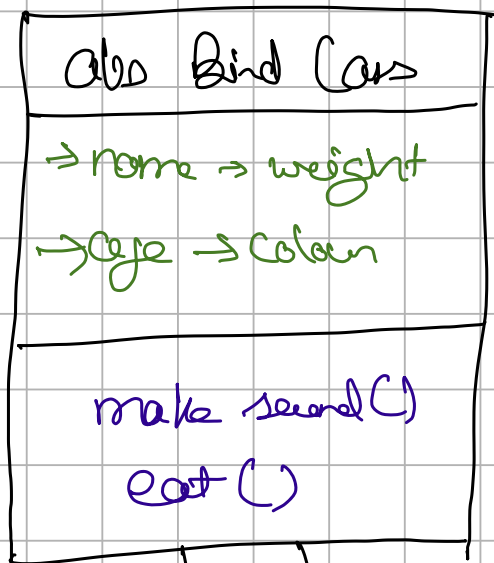 abs Bird Class
→ name → weight
→ age → Colour
make sound()
eat()